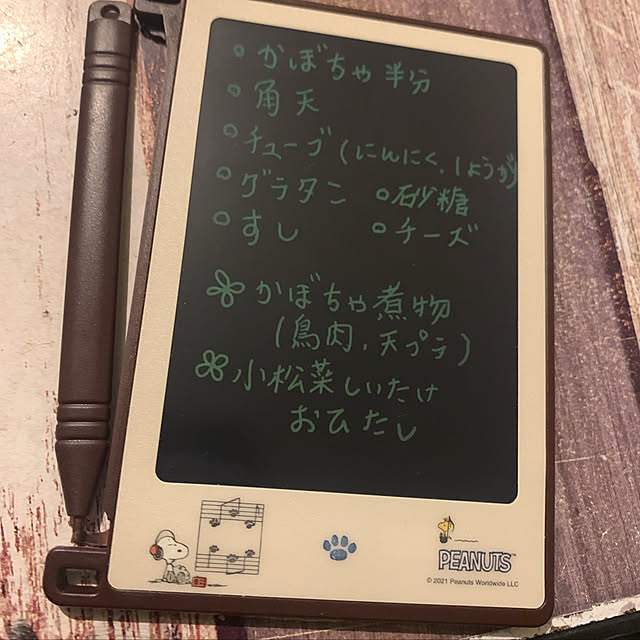 ○ かぼちゃ半分
○ 角天
○ チューブ(にんにく、しょうが)
○ グラタン ○ 砂糖
○ すし ○ チーズ
かぼちゃ煮物
(鳥肉、天プラ)
小松菜しいたけ
おひたし
PEANUTS™
© 2021 Peanuts Worldwide LLC